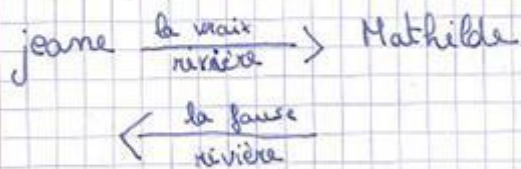 jeane la vraix rivière Mathilde
la fause
rivière